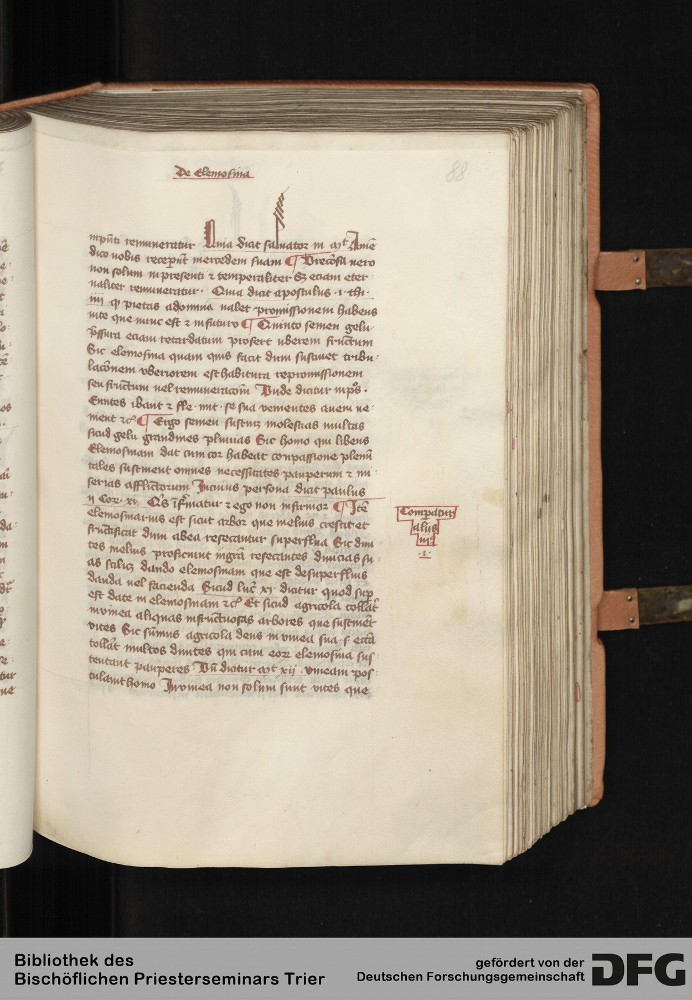 De Elemosina
88
mp̄nti remuneratur Quia dicit saluator m mt Amē
dico vobis receper̄t mercedem suam ¶ Vrecōsa vero
non solum inpresenti ⁊ temperaliter Sꝫ eciam eter
naliter remuneratur · Quia dicit apostulus · i · thi ·
iiij qꝫ pietas adomnia ualet promissionem habens
uite que nunc est ⁊ infuturo ¶ Quinto semen gelu
p̄ssura eciam retardatum profert uberem fructum
Sic elemosina quam quis facit dum sustinet tribu
lacōnem vberiorem est habitura repromissionem
seu fructum uel remuneracōm Vnde dicitur inp̄s ·
Euntes ibant ⁊ fle · mit · se sua venientes autem ue
nient ⁊cꝫ ¶ Ergo semen sustinꝫ molestias multas
sicud gelu grandines pluuias Sic homo qui libens
Elemosinam dat cum cor habeat conpassione plenū
tales sustinent omnes necessitates pauperum ⁊ mi
serias afflictorum Incuius persona dicit paulus
ij Cor · xi · Qis īfirmatur ⁊ ego non infirmor ¶ Itē
elemosinarius est sicut arbor que melius crescit et
fructificat dum abea resecantur superflua Sic diui
tes melius proficiunt ingrā resecantes diuicias su
as scilicꝫ dando elemosinam que est desuperfluis
danda uel facienda Sicud luc̄ xi dicitur quod sup̄
est date in elemosinam ⁊cꝫ Et sicud agricola collat̄
invinea aliquas infructuosas arbores que sustinēt
vites Sic sūmus agricola deus in vinea sua · s · ecc̄a
tollat̄ multos diuites qui cum eorꝫ elemosina sus
tentant pauperes Vn̄ dicitur mt xij · vineam pos
tulauit homo In vinea non solum sunt vites que
Comparatur
alijs
iij
· i ·
Bibliothek des
Bischöflichen Priesterseminars Trier
gefördert von der
Deutschen Forschungsgemeinschaft
DFG